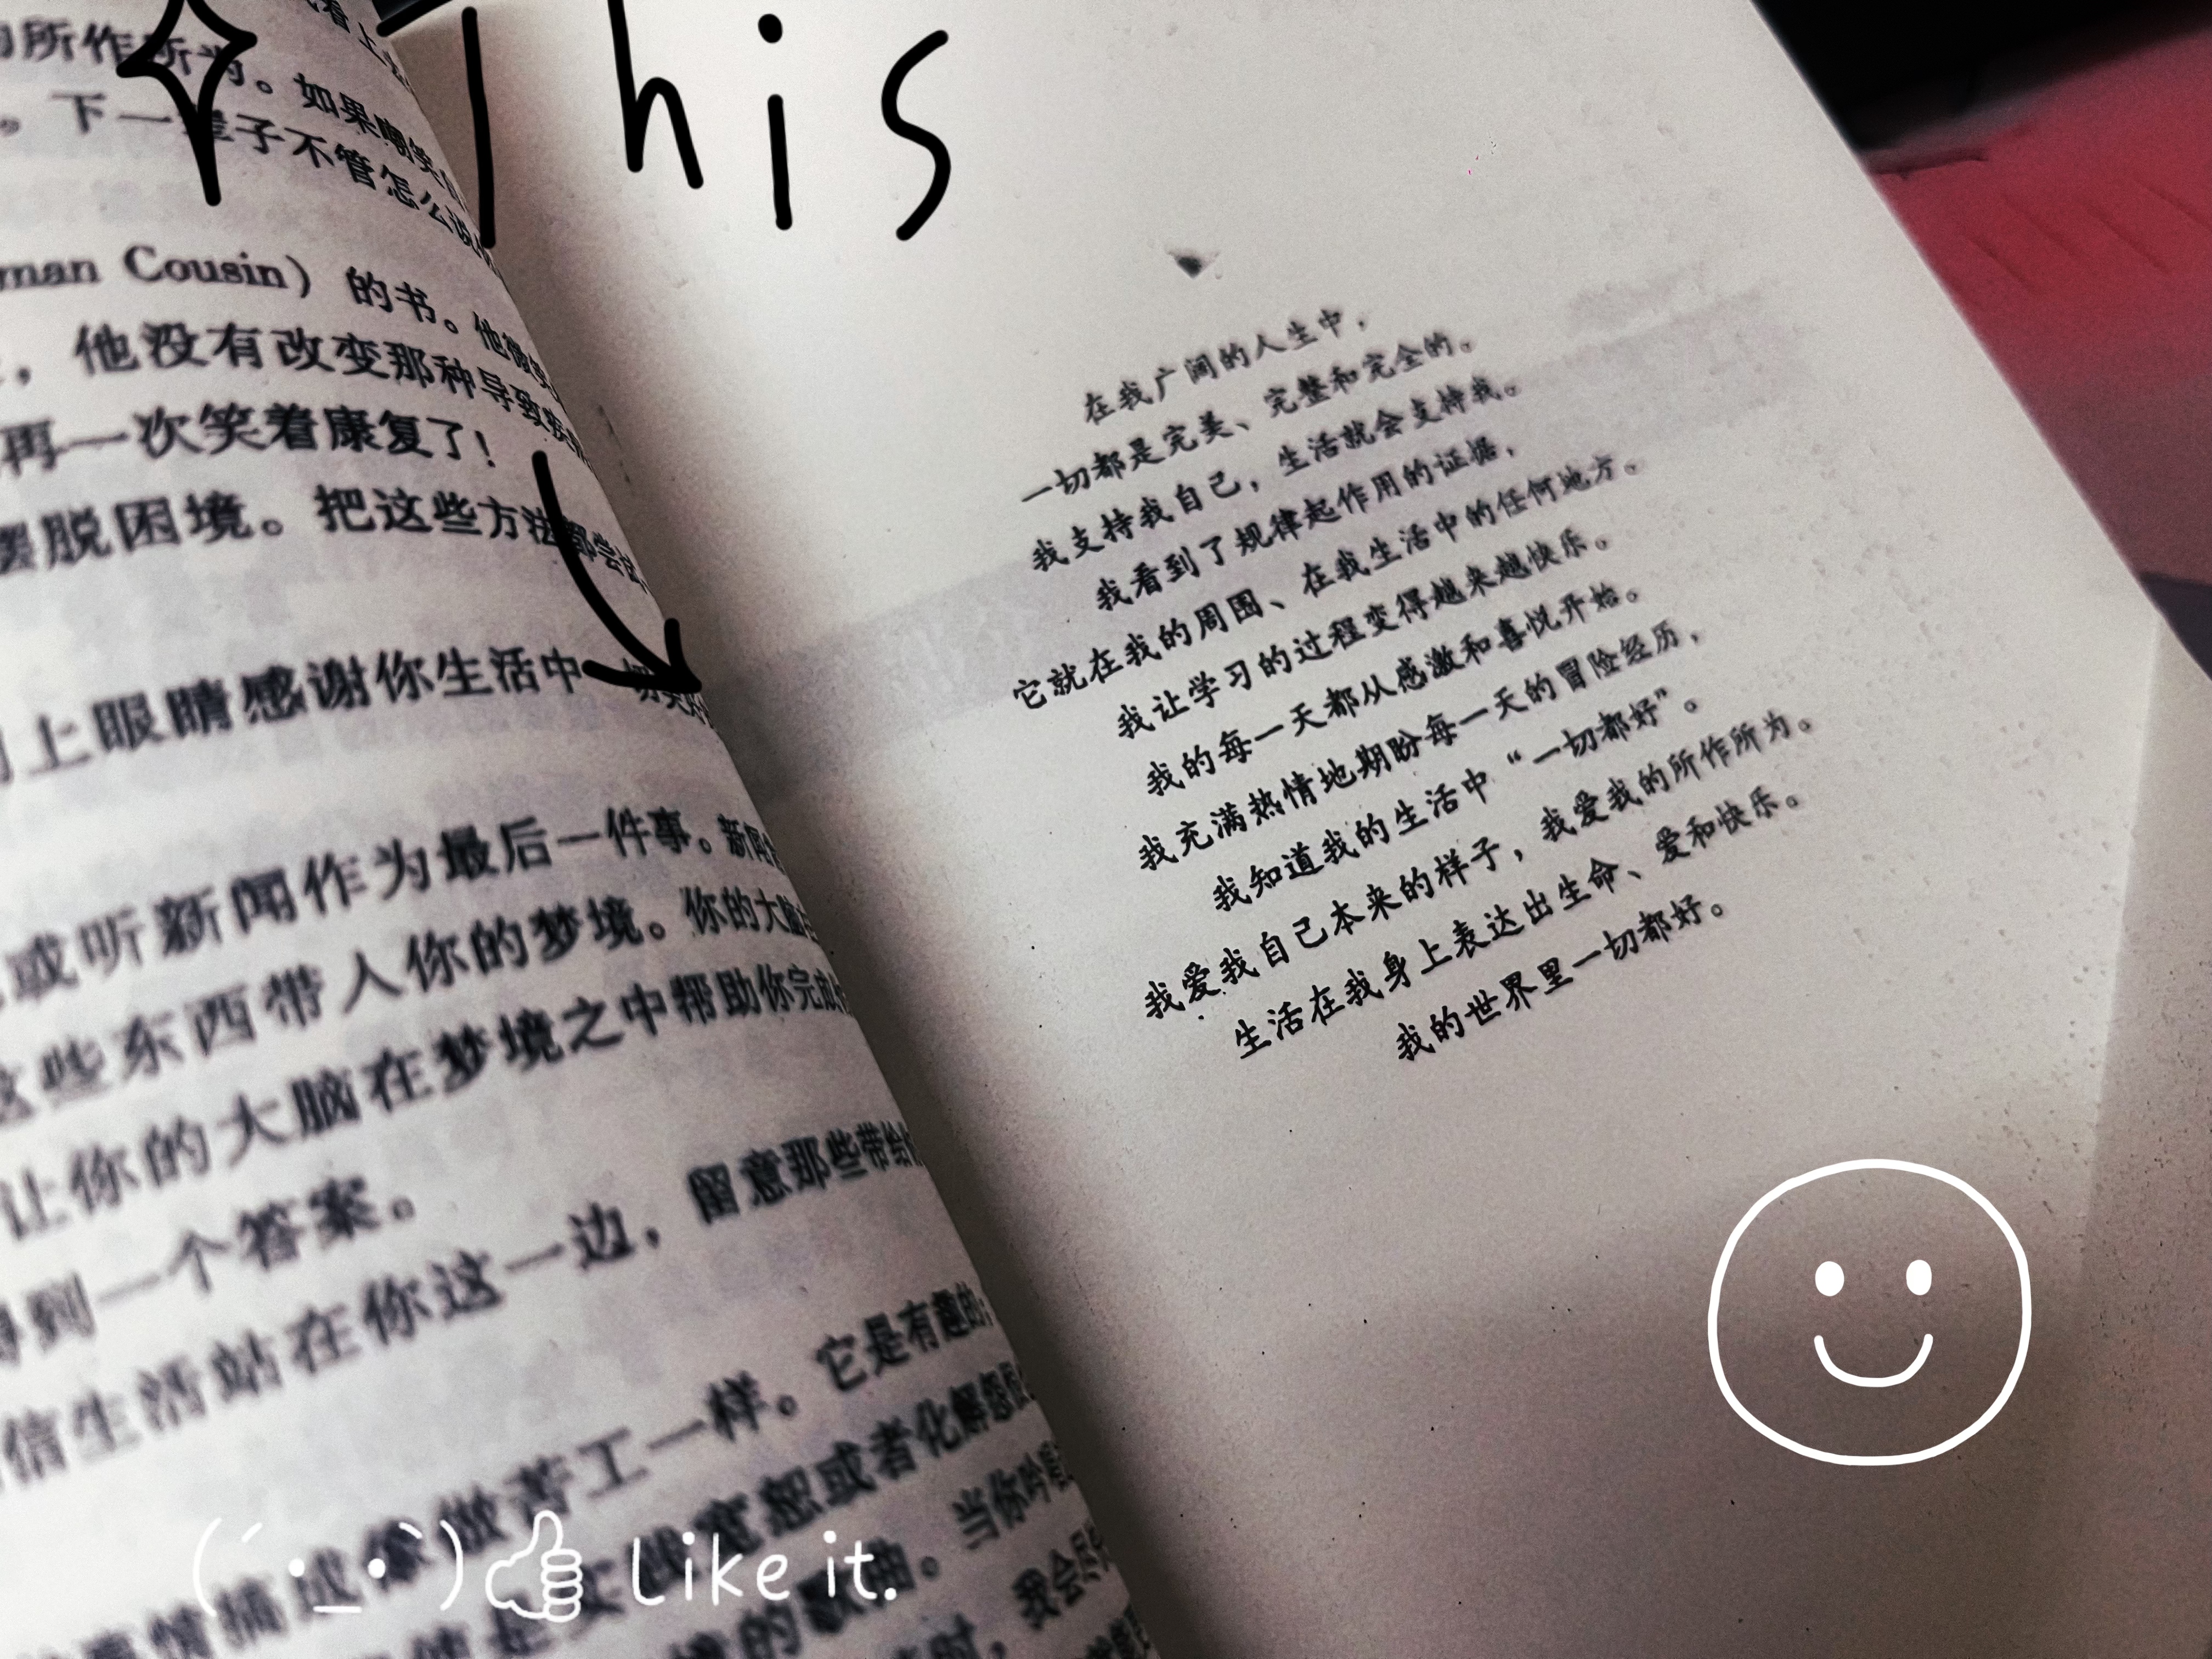 This
所作所为。如果嘲笑
下一辈子不管怎么说
man Cousin）的书。他微笑
，他没有改变那种导致疾
再一次笑着康复了！
摆脱困境。把这些方法都尝试
上眼睛感谢你生活中一切美好
或听新闻作为最后一件事。新闻
这些东西带入你的梦境。你的大脑
让你的大脑在梦境之中帮助你完成
得到一个答案。
信生活站在你这一边，留意那些带给
事情描述成像做苦工一样。它是有趣的；
宽恕或者化解怨恨
的歌曲。当你吟唱
时，我会尽
在我广阔的人生中，
一切都是完美、完整和完全的。
我支持我自己，生活就会支持我。
我看到了规律起作用的证据，
它就在我的周围、在我生活中的任何地方。
我让学习的过程变得越来越快乐。
我的每一天都从感激和喜悦开始。
我充满热情地期盼每一天的冒险经历，
我知道我的生活中“一切都好”。
我爱我自己本来的样子，我爱我的所作所为。
生活在我身上表达出生命、爱和快乐。
我的世界里一切都好。
Like it.